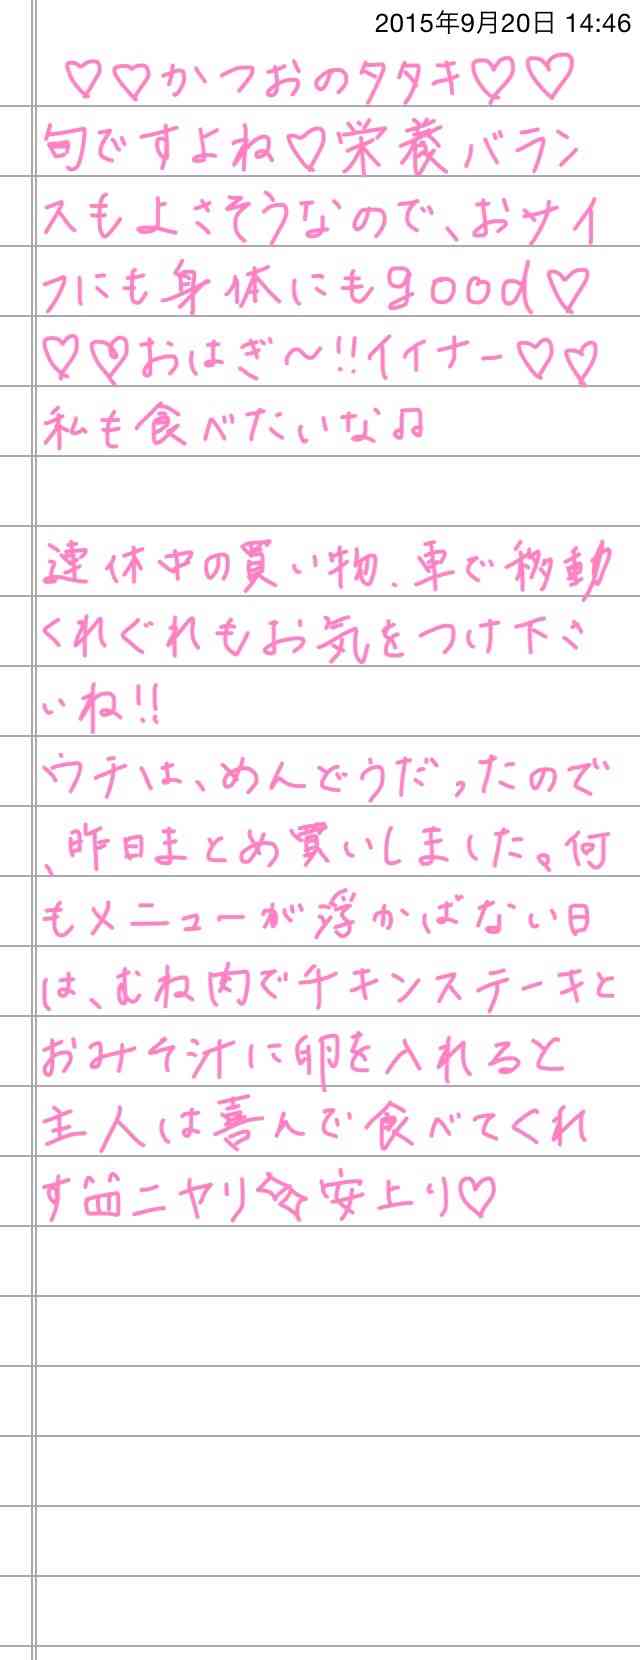 2015年9月20日 14:46
♡♡かつおのタタキ♡♡
旬ですよね♡栄養バラン
スもよさそうなので、おサイ
フにも身体にもgood♡
♡♡おはぎ〜!!イイナー♡♡
私も食べたいな♫
連休中の買い物、車で移動
くれぐれもお気をつけ下さ
いね!!
ウチは、めんどうだったので
、昨日まとめ買いしました。何
もメニューが浮かばない日
は、むね肉でチキンステーキと
おみそ汁に卵を入れると
主人は喜んで食べてくれ
すニヤリ安上り♡